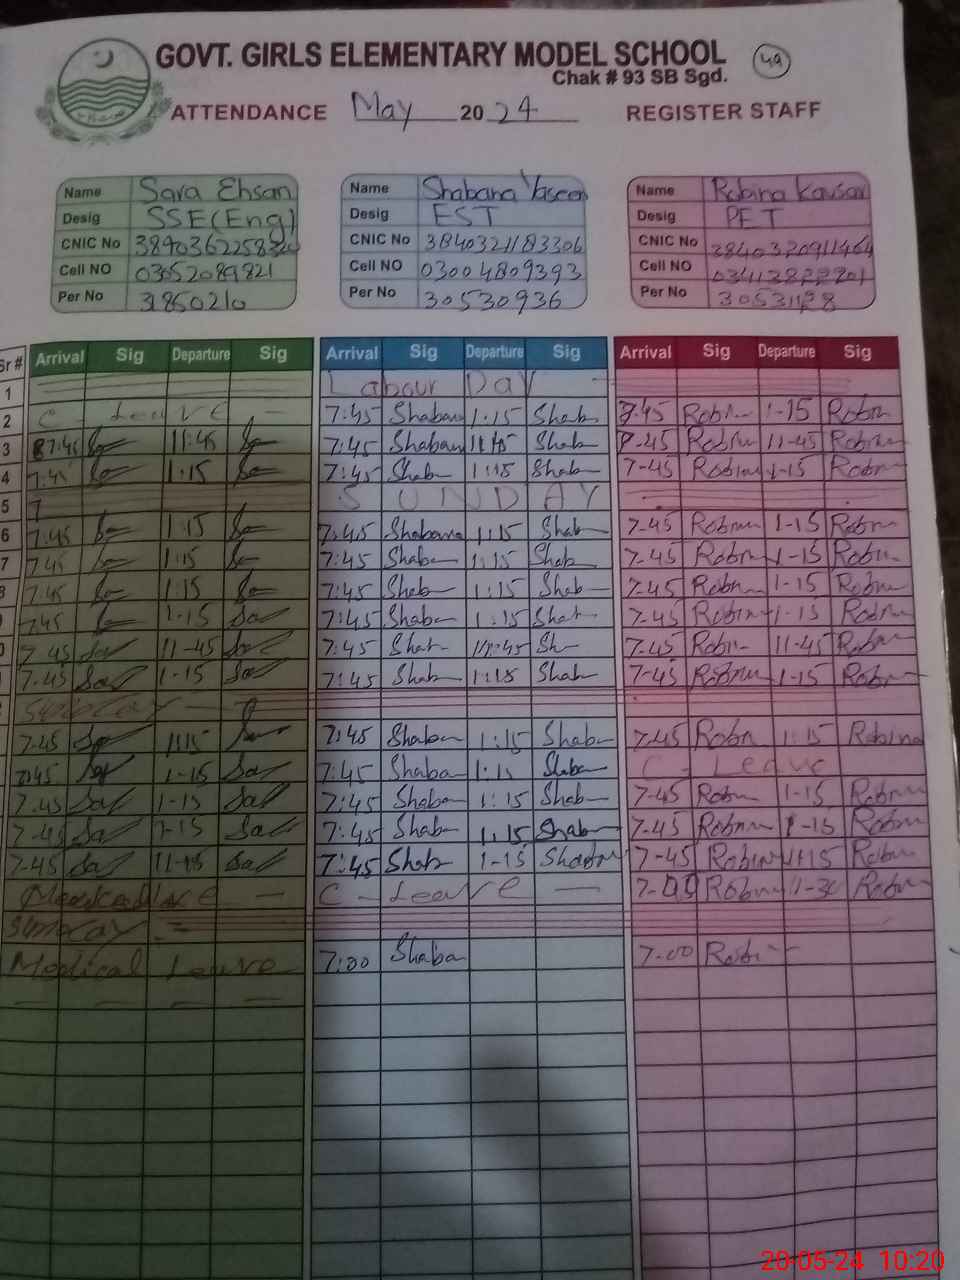 GOVT. GIRLS ELEMENTARY MODEL SCHOOL 49
Chak # 93 SB Sgd.
ATTENDANCE May 2024 REGISTER STAFF
Name Sara Ehsan Name Shabana Yaseen Name Robina Kausar
Desig SSE(Eng) Desig EST Desig PET
CNIC No CNIC No 3840321183306 CNIC No
Cell NO 03052089821 Cell NO 03004809393 Cell NO
Per No 31850210 Per No 30530936 Per No 30531128
Sr # Arrival Sig Departure Sig Arrival Sig Departure Sig Arrival Sig Departure Sig
1 Labour Day
2 C - Leave - 7:45 Shaban 1:15 Shab 8-45 Robin 1-15 Robin
3 7:45 11:45 7:45 Shaban 11:45 Shab 8-45 Robin 11-45 Robin
4 7:45 1:15 7:45 Shab 1:15 Shab 7-45 Robin 1-15 Robin
5 SUNDAY
6 7:45 1:15 7:45 Shabana 1:15 Shab 7-45 Robin 1-15 Robin
7 7:45 1:15 7:45 Shaba 1:15 Shab 7-45 Robin 1-15 Robin
8 7:45 1:15 7:45 Shab 1:15 Shab 7-45 Robin 1-15 Robin
7:45 1-15 Sa 7:45 Shaba 1:15 Shab 7-45 Robin 1-15 Robin
7-45 Sa 11-45 Sa 7:45 Shab 11:45 Sh 7-45 Robin 11-45 Robin
7-45 Sa 1-15 Sa 7:45 Shab 1:15 Shab 7-45 Robin 1-15 Robin
Sunday
7-45 1:15 7:45 Shaban 1:15 Shaba 7-45 Robin 1:15 Robina
7:45 Sa 1-15 Sa 7:45 Shaba 1:15 Shaba C - Leave
7-45 Sa 1-15 Sa 7:45 Shaba 1:15 Shab 7-45 Robin 1-15 Robin
7-45 Sa 1-15 Sa 7:45 Shab 1.15 Shab 7-45 Robin 1-15 Robin
7-45 Sa 11-15 Sa 7:45 Shab 1-15 Shaban 7-45 Robin 11-15 Robin
Medical Leave - C - Leave - Robin 1-30 Robin
Sunday -
Medical Leave 7:00 Shaba 7-00 Robin
28-05-24 10:20